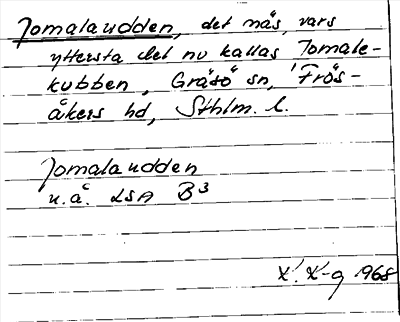 Jomalaudden, det näs, vars
yttersta del nu kallas Jomale-
kubben, Gräsö sn, Frös-
åkers hd, Sthlm. l.
Jomalaudden
u.å. LSA B3
K. K-g 1968